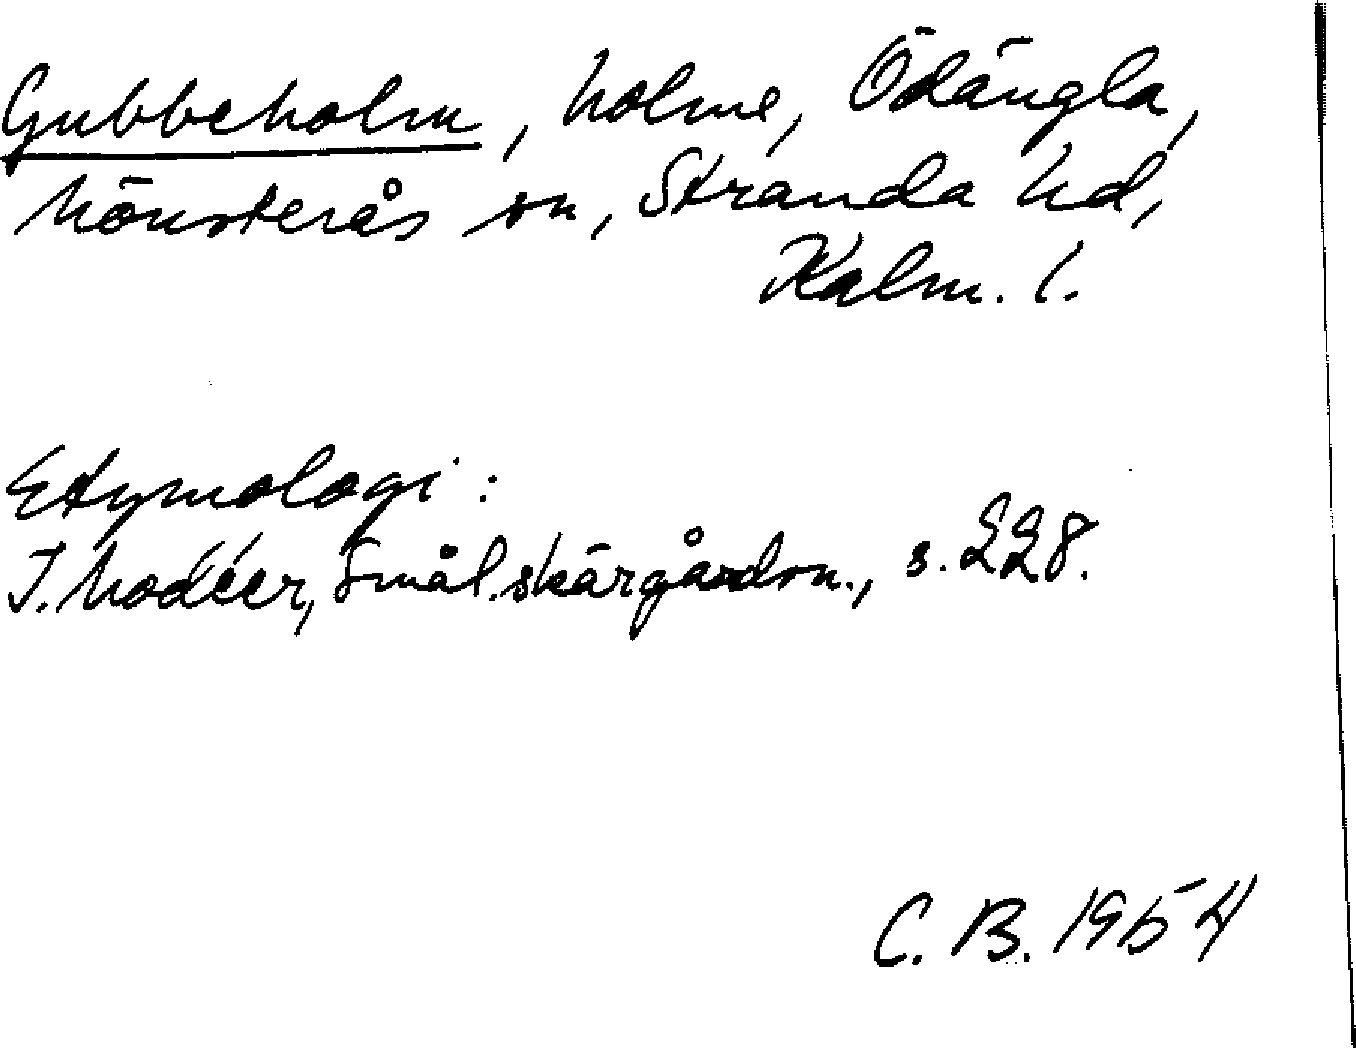 Gubbeholm, holme, Ödängla,
Mönsterås sn, Stranda hd,
Kalm. l.
Etymologi:
I. Modéer, Smål. skärgårdsn., s. 228.
C. B. 1954